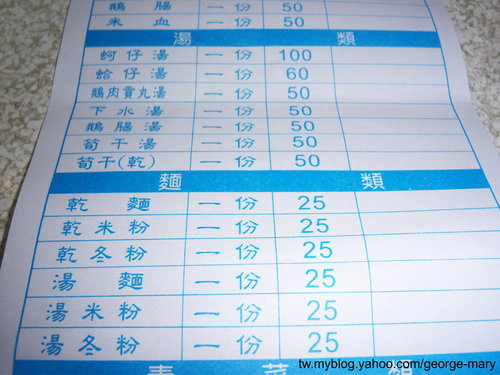 鵝腸 一份 50
米血 一份 50
湯 類
蚵仔湯 一份 100
蛤仔湯 一份 60
鵝肉貢丸湯 一份 50
下水湯 一份 50
鵝腸湯 一份 50
筍干湯 一份 50
筍干(乾) 一份 50
麵 類
乾麵 一份 25
乾米粉 一份 25
乾冬粉 一份 25
湯麵 一份 25
湯米粉 一份 25
湯冬粉 一份 25
青菜類
tw.myblog.yahoo.com/george-mary